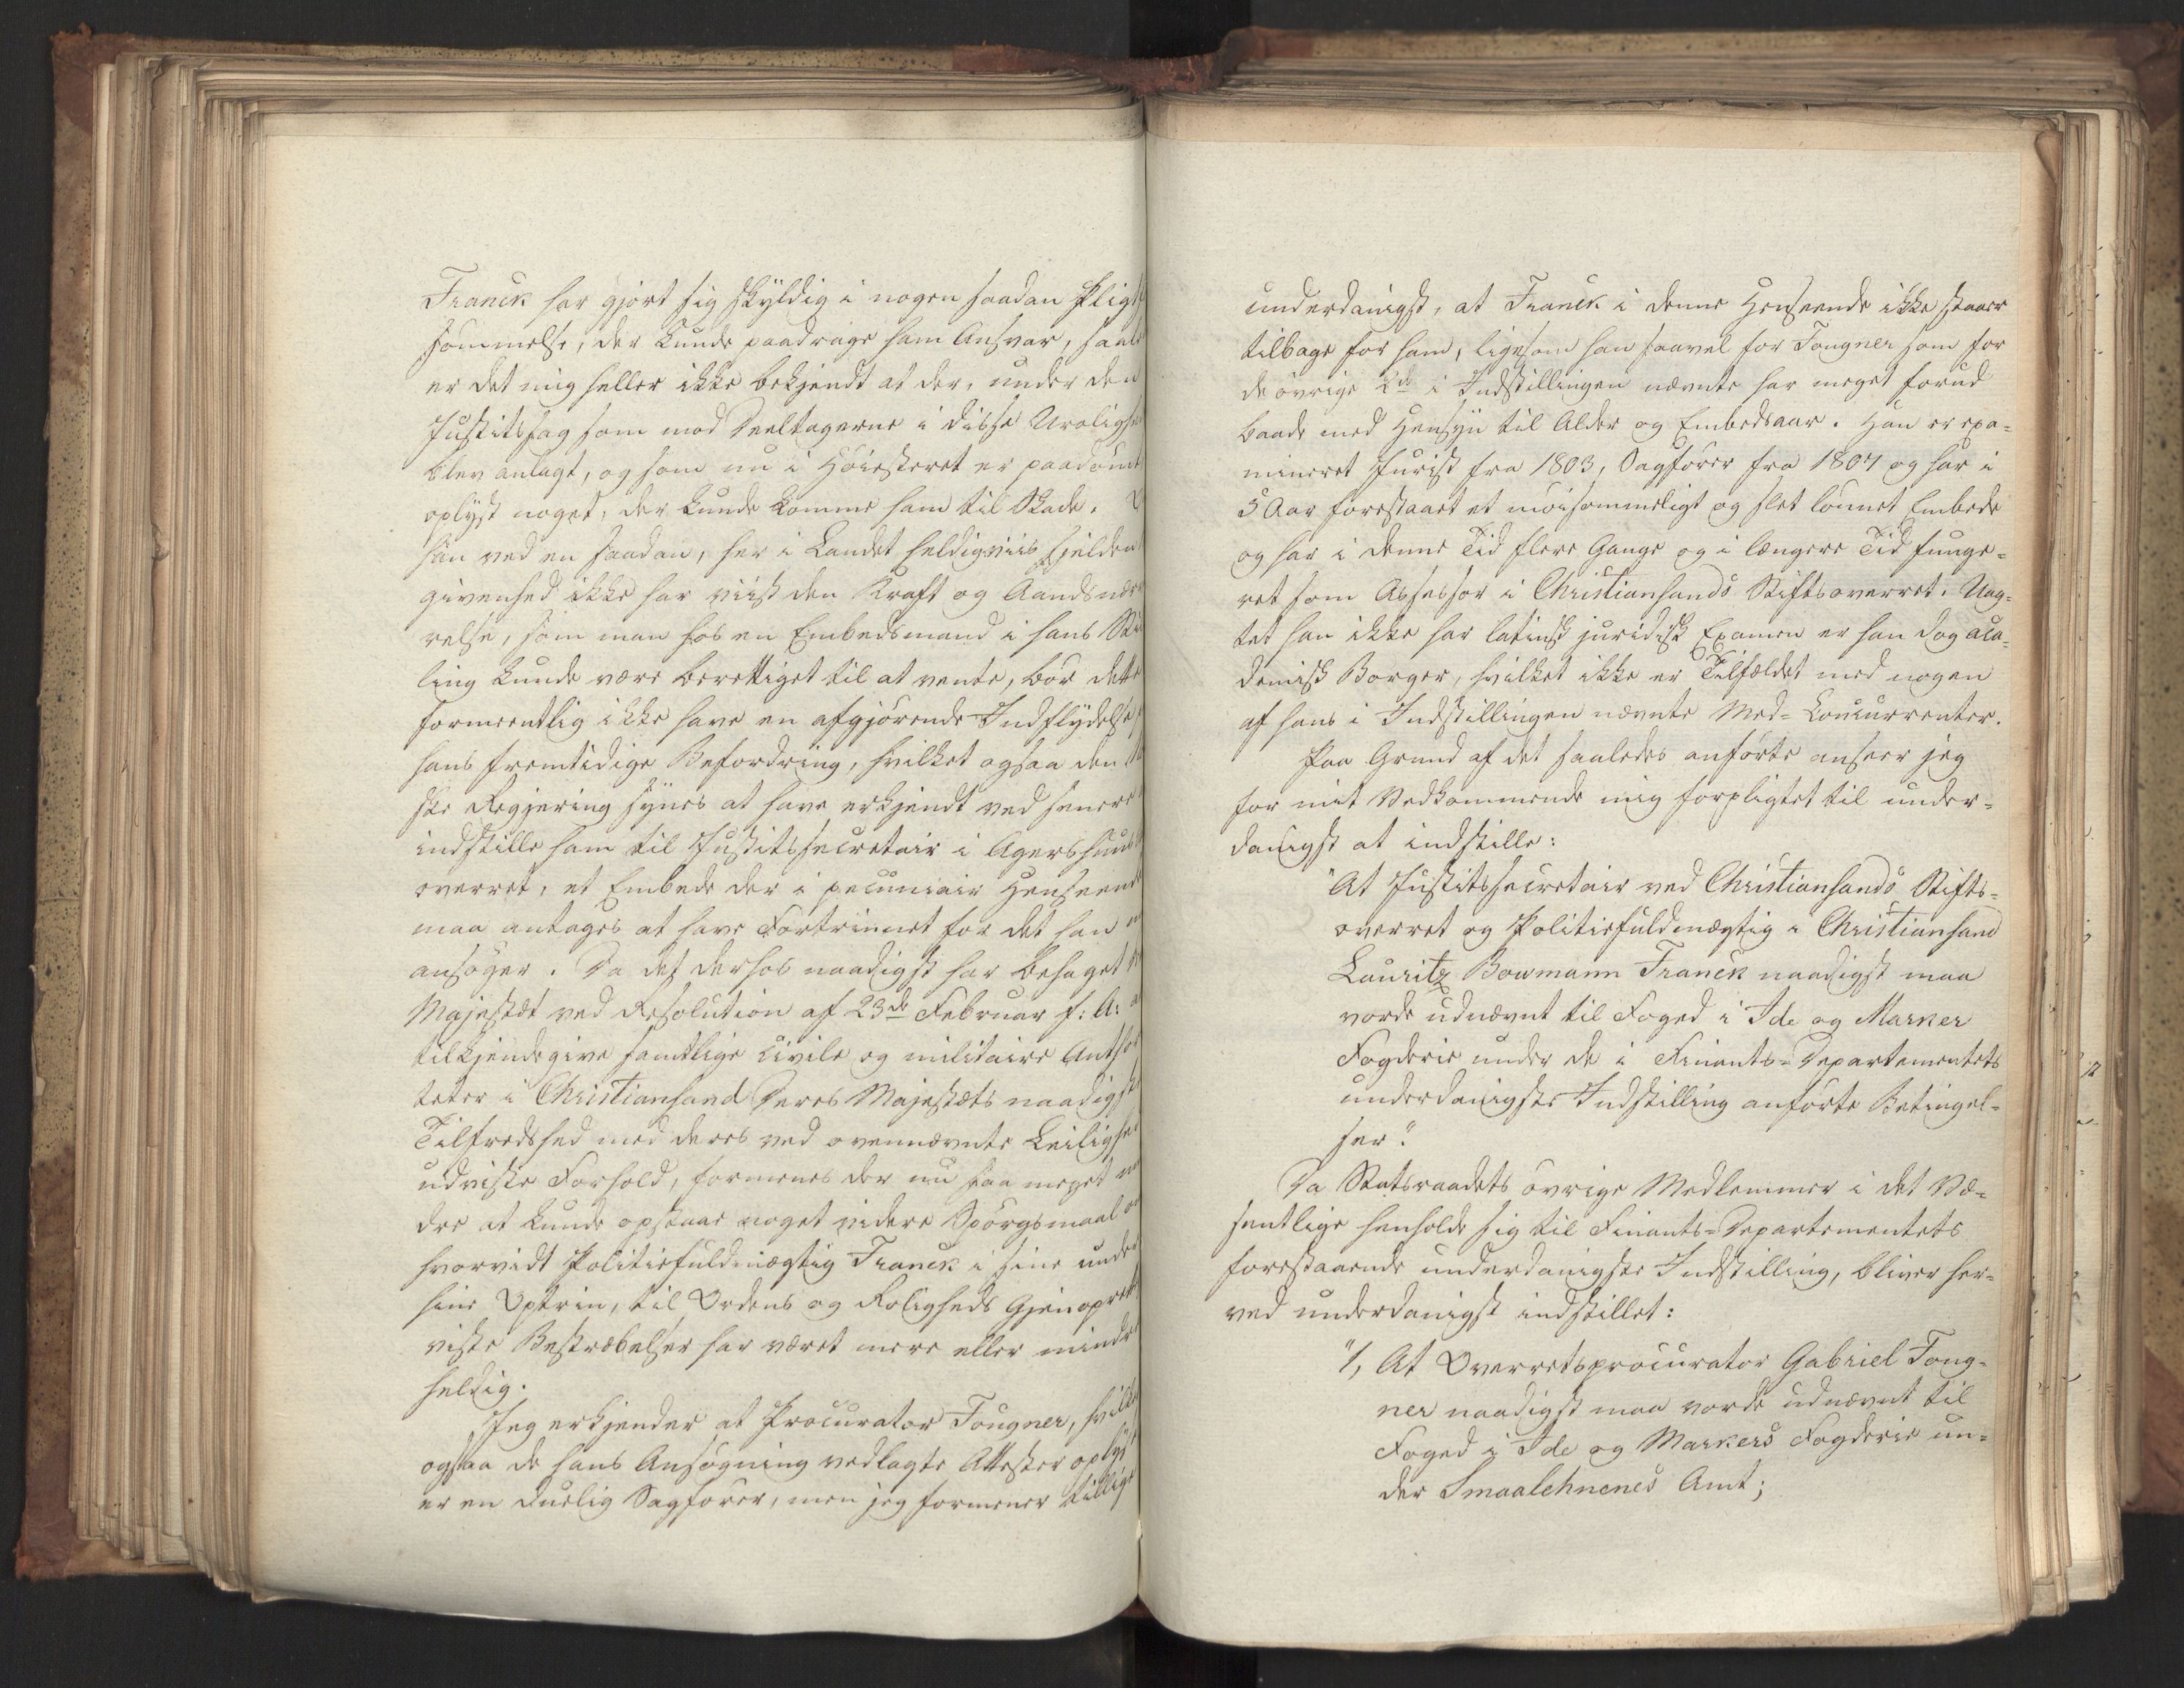 Franck har gjort sig skyldig i nogen saadan Pligt
sømmelse, der kunde paadrage ham Ansvar, saale
er det mig heller ikke bekjendt at der, under den
Justitssag som mod Deeltagerne i disse Uroligh
blev anlagt, og som nu i Höiesteret er paadömt
oplyst noget, der kunde komme ham til Skade.
han ved en saadan, her i Landet heldigviis sjelden
givenhed ikke har viist den Kraft og Aandsnær
relse, som man hos en Embedsmand i hans Stil
ling kunde være berettiget til at vente, bör dette
formeentlig ikke have en afgjörende Indflydelse
hans fremtidige Befordring, hvilket ogsaa den
ske Regjering synes at have erkjendt ved senere
indstille ham til Justitssecretair i Agershuus
overret, et Embede der i pecuniair Henseende
maa antages at have Fortrinnet for det han
ansöger. Da det derhos naadigst har behaget
Majestæt ved Resolution af 23de Februar f: A:
tilkjendegive samtlige civile og militaire Autho
teter i Christiansand Deres Majestæts naadigste
Tilfredshed med deres ved ovennævnte Leilighed
udviste Forhold, formenes der nu saa meget
dre at kunde opstaae noget videre Spörgsmaal
hvorvidt Politiefuldmægtig Franck i sine under
hine Optrin, til Ordens og Roligheds Gjenopret
viste Bestræbelser har været mere eller mindre
heldig.
Jeg erkjender at Procurator Tougner, hvilket
ogsaa de hans Ansögning vedlagte Attester oplyse
er en duelig Sagförer, men jeg formener tillige
underdanigst, at Franck i denne Henseende ikke staaer
tilbage for ham, ligesom han saavel for Tougner som for
de övrige 2de i Indstillingen nævnte har meget forud
baade med Hensyn til Alder og Embedsaar. Han er exa=
mineret Jurist fra 1803, Sagförer fra 1807 og har i
5 Aar forestaaet et möisommeligt og slet lönnet Embede
og har i denne Tid flere Gange og i længere Tid funge=
ret som Assessor i Christiansands Stiftsoverret. Uag=
tet han ikke har latinsk juridisk Examen er han dog aca=
demisk Borger, hvilket ikke er Tilfældet med nogen
af hans i Indstillingen nævnte Med=Concurrenter.
Paa Grund af det saaledes anförte anseer jeg
for mit Vedkommende mig forpligtet til under=
danigst at indstille:
"At Justitssecretair ved Christiansands Stifts=
overret og Politiefuldmægtig i Christiansand
Lauritz Bowmann Franck naadigst maa
vorde udnævnt til Foged i Ide og Marker
Fogderie under de i Finants=Departementets
underdanigste Indstilling anförte Betingel=
ser."
Da Statsraadets övrige Medlemmer i det Væ=
sentlige henholde sig til Finants=Departementets
forestaaende underdanigste Indstilling, bliver her=
ved underdanigst indstillet:
"1, At Overretsprocurator Gabriel Toug=
ner naadigst maa vorde udnævnt til
Foged i Ide og Markers Fogderie un=
der Smaalehnenes Amt;